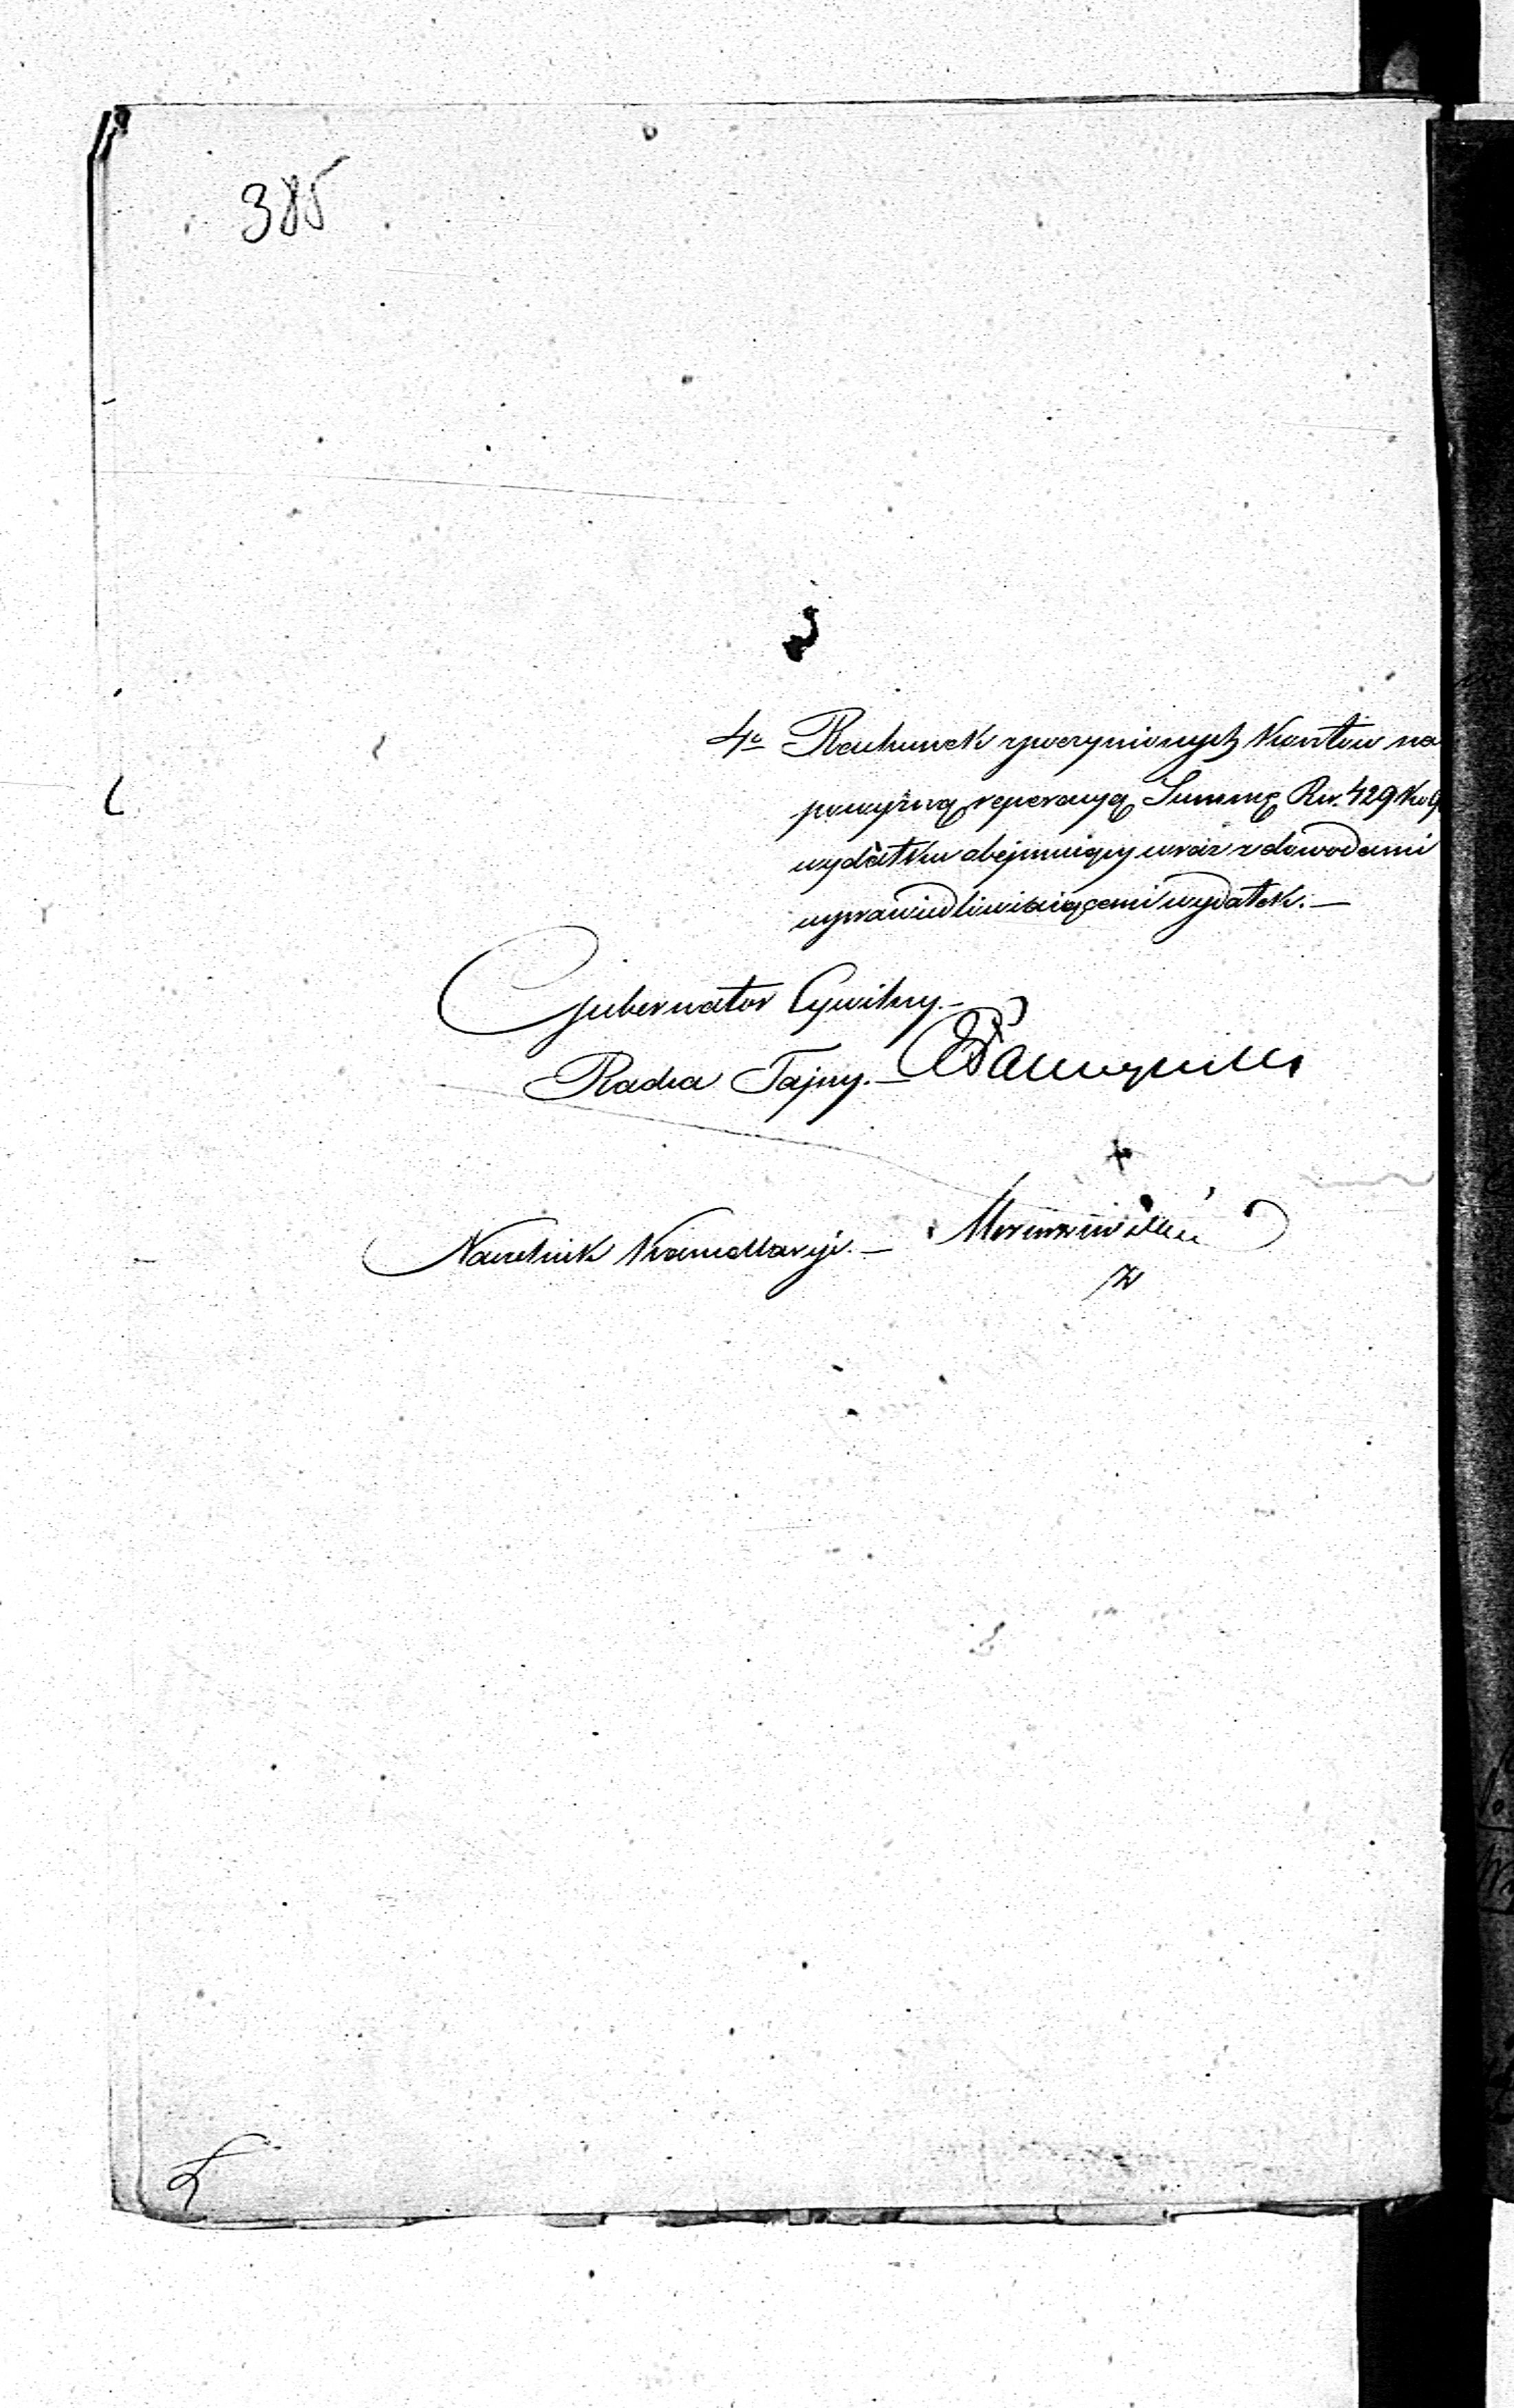 385
4o Rachunek z poczynionych Kosztów na
powyższą reperacyą Summę Rs. 429 Ko
wydatku obejmuiący wraz z dowodami
usprawiedliwiaiącemi wydatek. —
Gubernator Cywilny. —
Radca Tajny. —
Naczelnik Kancellaryi. —